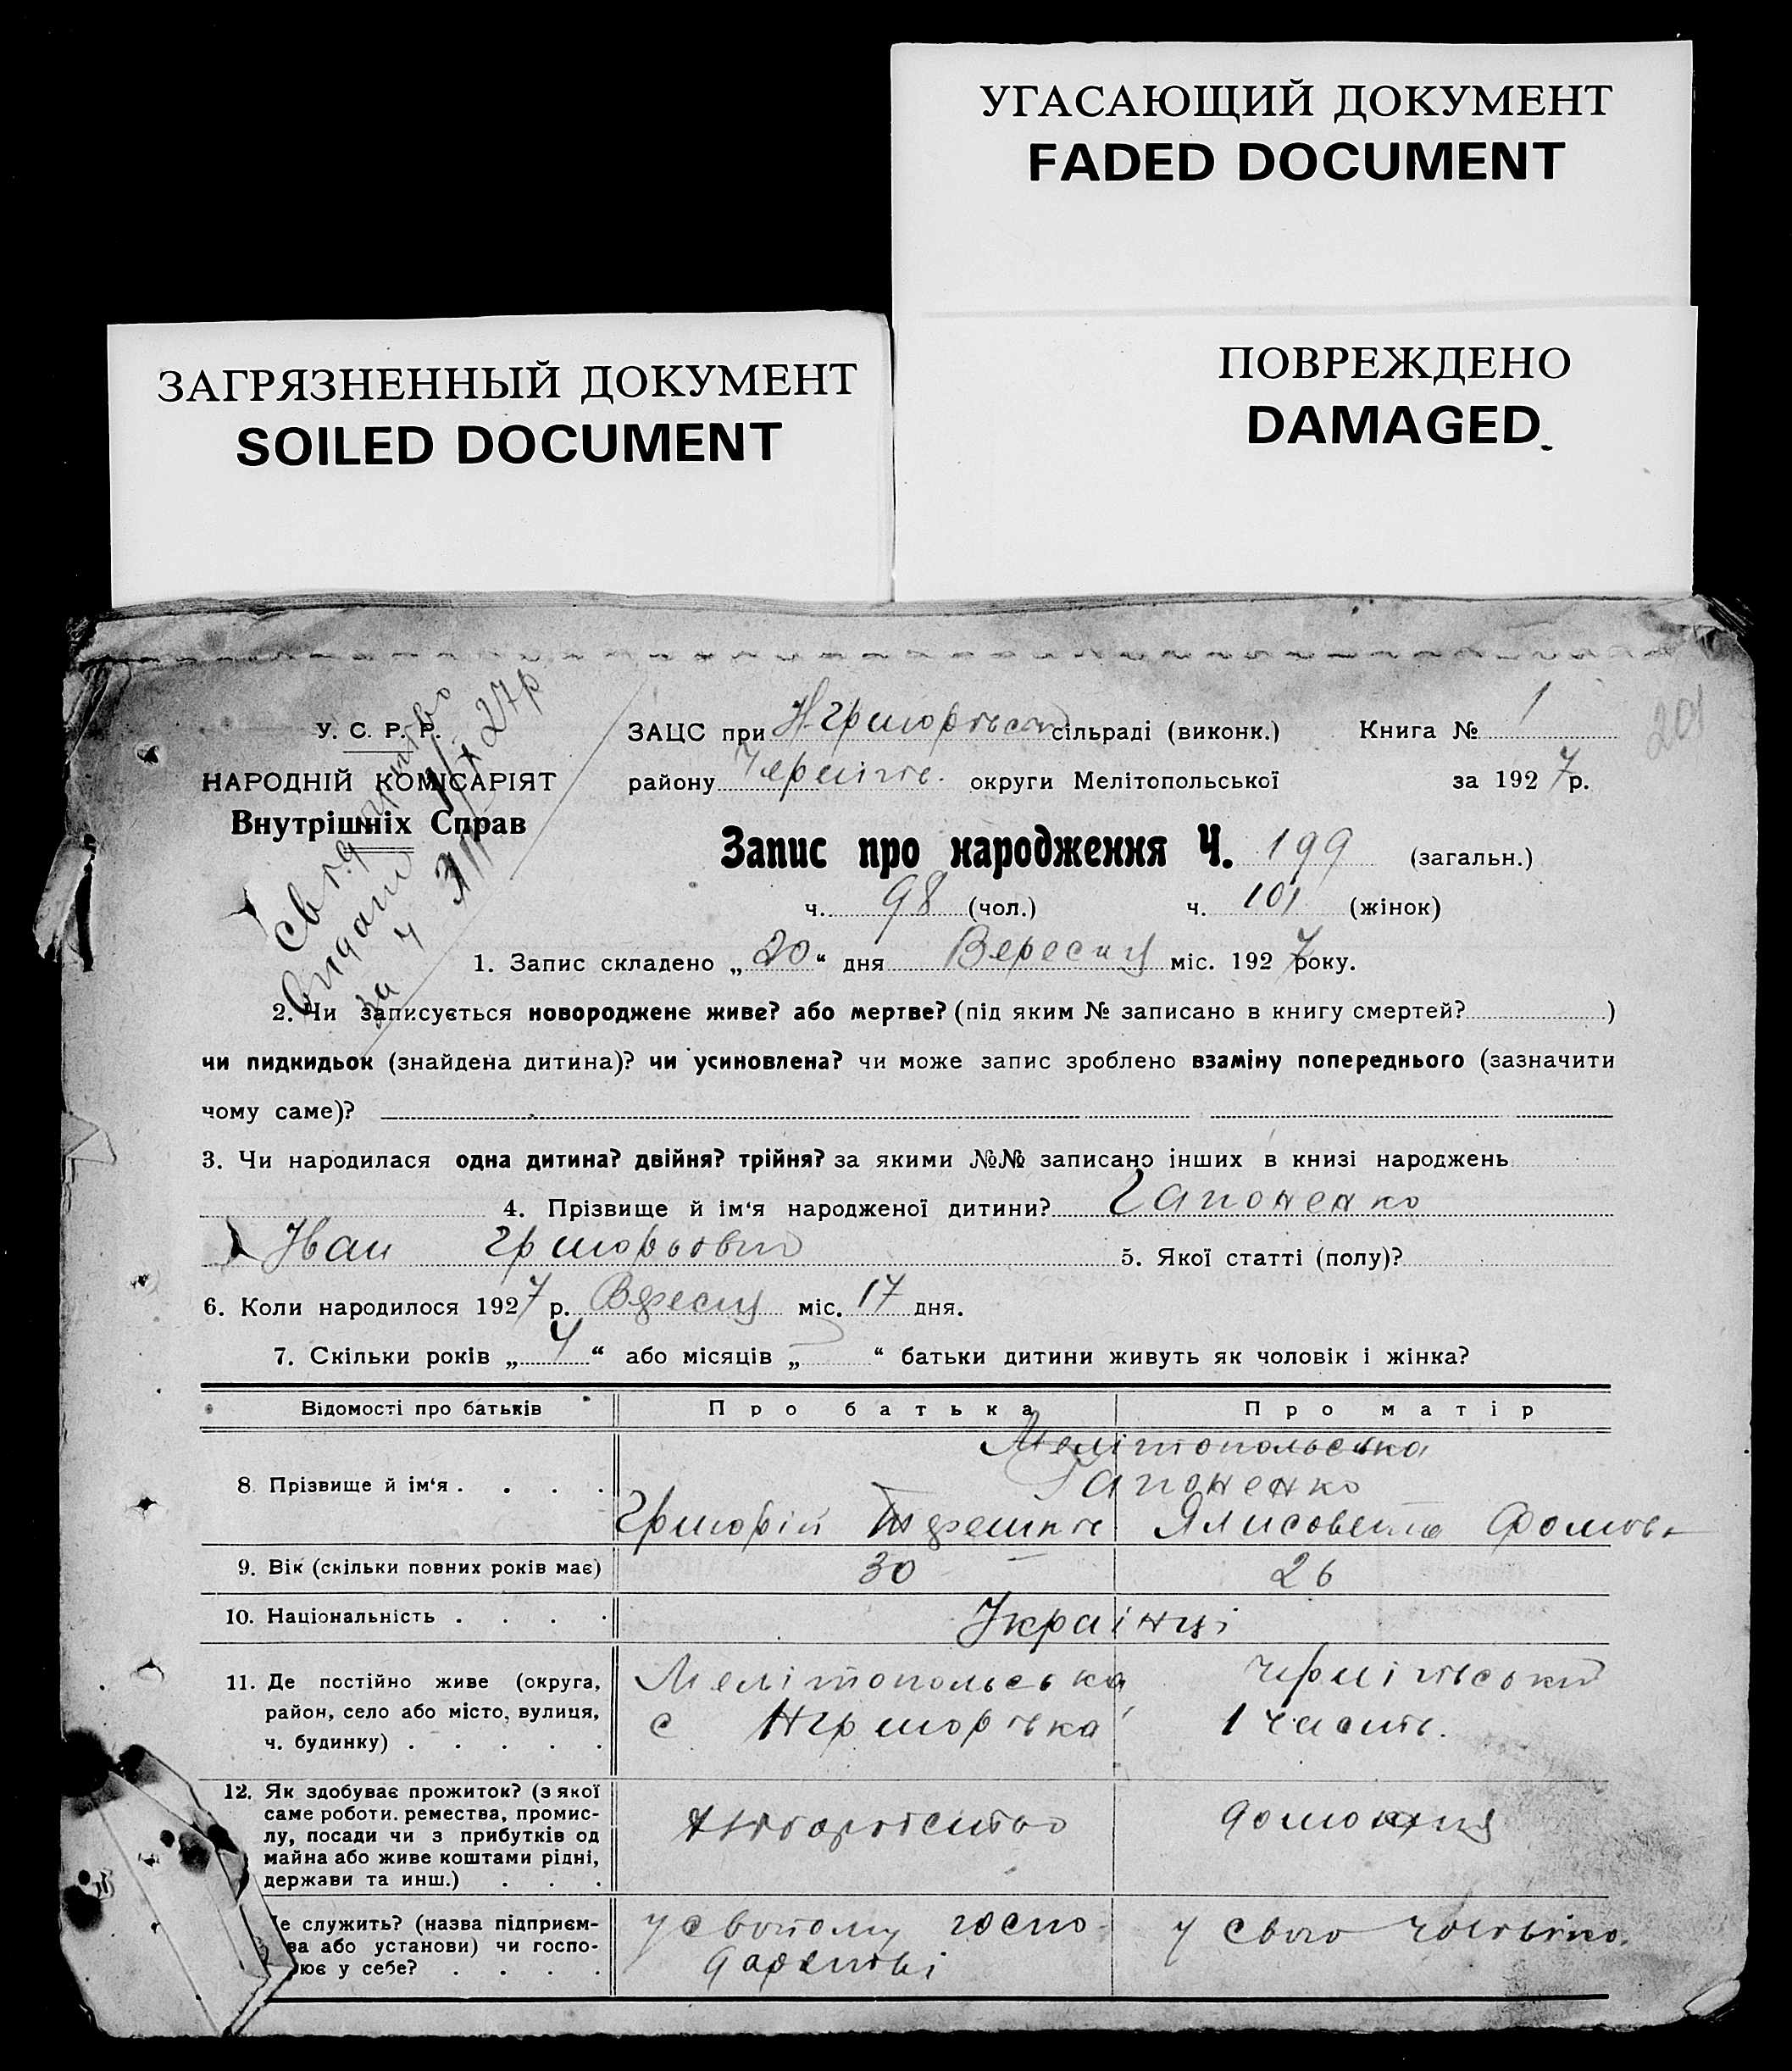 УГАСАЮЩИЙ ДОКУМЕНТ
FADED DOCUMENT
ЗАГРЯЗНЕННЫЙ ДОКУМЕНТ
SOILED DOCUMENT
ПОВРЕЖДЕНО
DAMAGED
201
У. С. Р. Р.
НАРОДНІЙ КОМІСАРІЯТ
Внутрішніх Справ
27р
ЗАЦС при сільраді (виконк.) Книга № 1
району Черніг округи Мелітопольської за 1927р.
Запис про народження Ч. 199 (загальн.)
ч. 98 (чол.) ч. 101 (жінок)
1. Запис складено „20“ дня Вересня міс. 1927 року.
2. Чи записується новороджене живе? або мертве? (під яким № записано в книгу смертей? )
чи пидкидьок (знайдена дитина)? чи усиновлена? чи може запис зроблено взаміну попереднього (зазначити
чому саме)?
3. Чи народилася одна дитина? двійня? трійня? за якими №№ записано інших в книзі народжень
4. Прізвище й ім‘я народженої дитини? Гапоненко
Іван Григорьович 5. Якої статті (полу)?
6. Коли народилося 1927 р. Вересня міс. 17 дня.
7. Скільки років „4“ або місяців „ “ батьки дитини живуть як чоловік і жінка?
Відомості про батьків Про батька Про матір
Мелітопольська
8. Прізвище й ім‘я . . . . Гапоненко
Григорій Ялисовета Фомов
9. Вік (скільки повних років має) 30 26
10. Національність . . . . Українці
11. Де постійно живе (округа, Мелітопольська Чернігівський
район, село або місто, вулиця, с Нгригорівка 1 част.
ч. будинку) . . . . .
12. Як здобуває прожиток? (з якої
саме роботи. ремества, промис-
лу, посади чи з прибутків од хліборобство домохазя
майна або живе коштами рідні,
держави та инш.) . . .
е служить? (назва підприєм- у свойому госпо
ва або установи) чи госпо- дарстві у свого чоловіка
ює у себе? . . . .